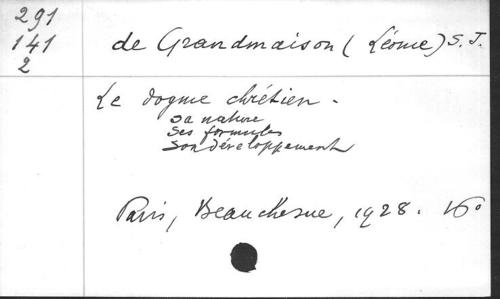 291
141
2
de Grandmaison (Léonce) S.J.
Le dogme chrétien -
sa nature
ses formules
son développement
Paris, Beauchesne, 1928. 16°